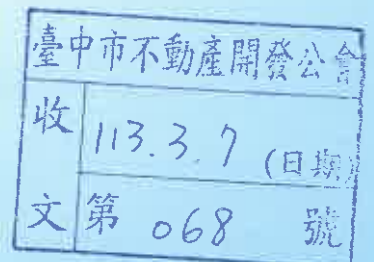 臺中市不動產開發公會
收 113.3.7 (日期)
文 第 068 號